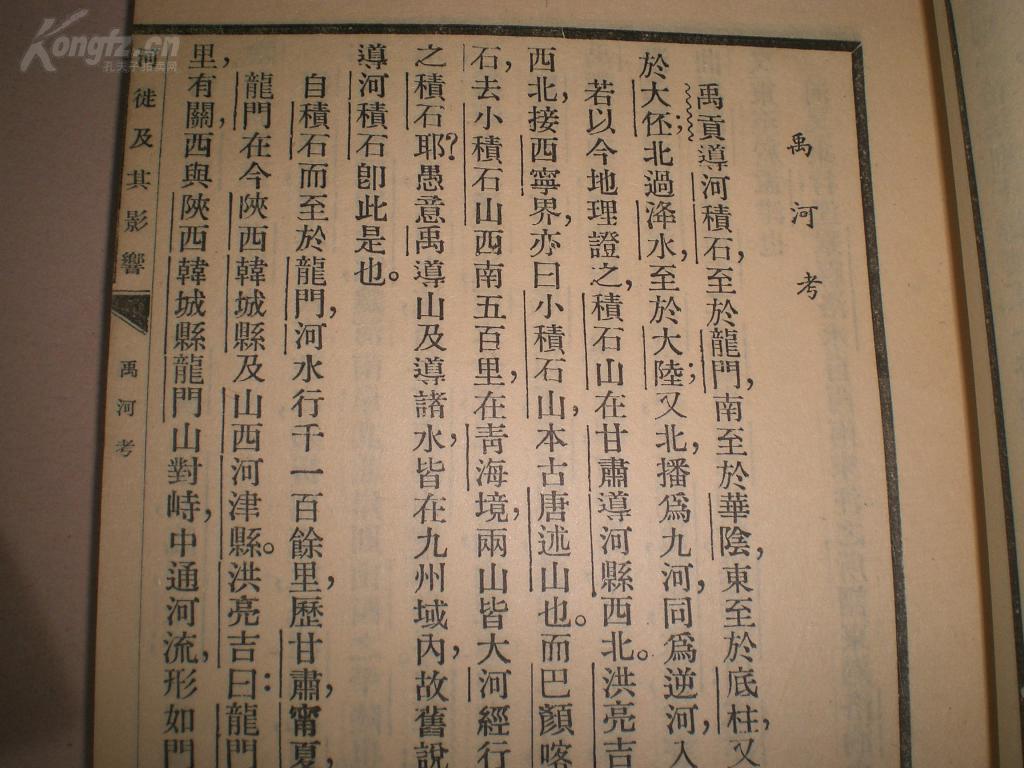 禹河考
禹貢導河積石，至於龍門，南至於華陰，東至於底柱，又
於大伾；北過洚水，至於大陸；又北，播爲九河，同爲逆河，入
若以今地理證之，積石山在甘肅導河縣西北。洪亮吉
西北，接西寧界，亦曰小積石山，本古唐述山也。而巴顏喀
石，去小積石山西南五百里，在青海境，兩山皆大河經行
之積石耶？愚意禹導山及導諸水，皆在九州域內，故舊說
導河積石卽此是也。
自積石而至於龍門，河水行千一百餘里，歷甘肅，甯夏，
龍門在今陝西韓城縣及山西河津縣。洪亮吉曰：龍門
里，有關西與陝西韓城縣龍門山對峙，中通河流，形如門
河徙及其影響
禹河考
Kongfz.cn
孔夫子拍賣网